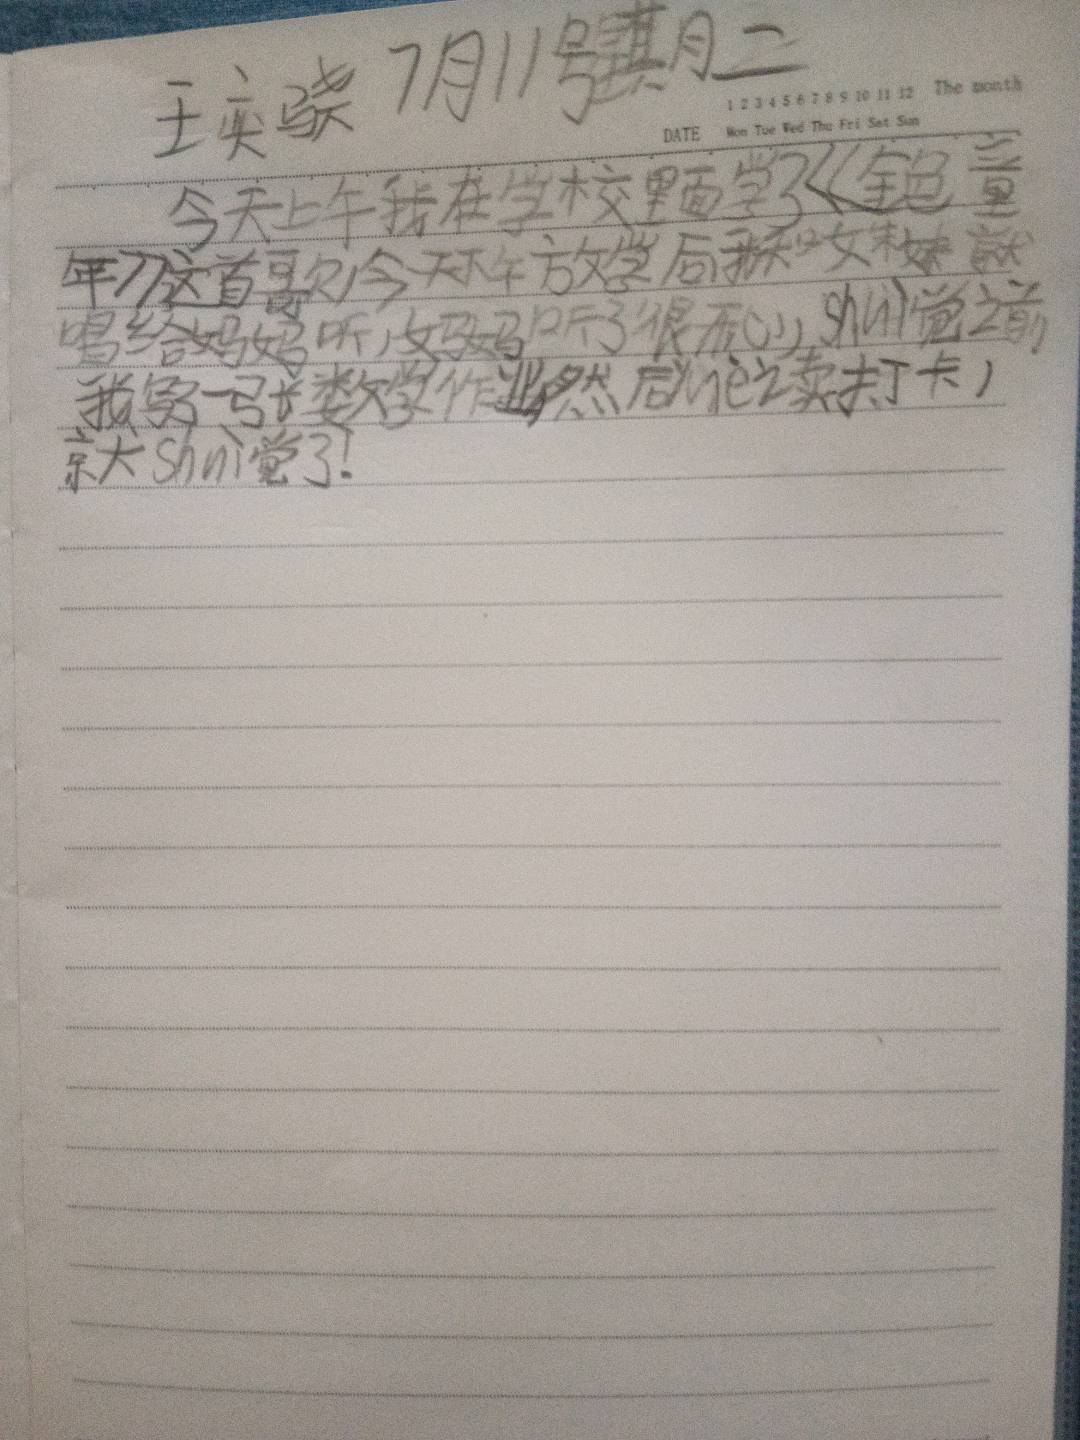 王奕骁 7月11号星期二
1 2 3 4 5 6 7 8 9 10 11 12 The month
DATE Mon Tue Wed Thu Fri Sat Sun
今天上午我在学校里面学了《金色童
年》这首歌，今天下午放学后我和妹妹就
唱给妈妈听，妈妈听了很开心，shuì觉之前
我写一张数学作业然后论读打卡，
shuì觉了！